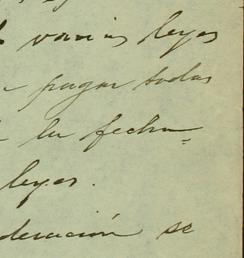 varias leyes
pagar todas
la fecha=
leyes.
deración se